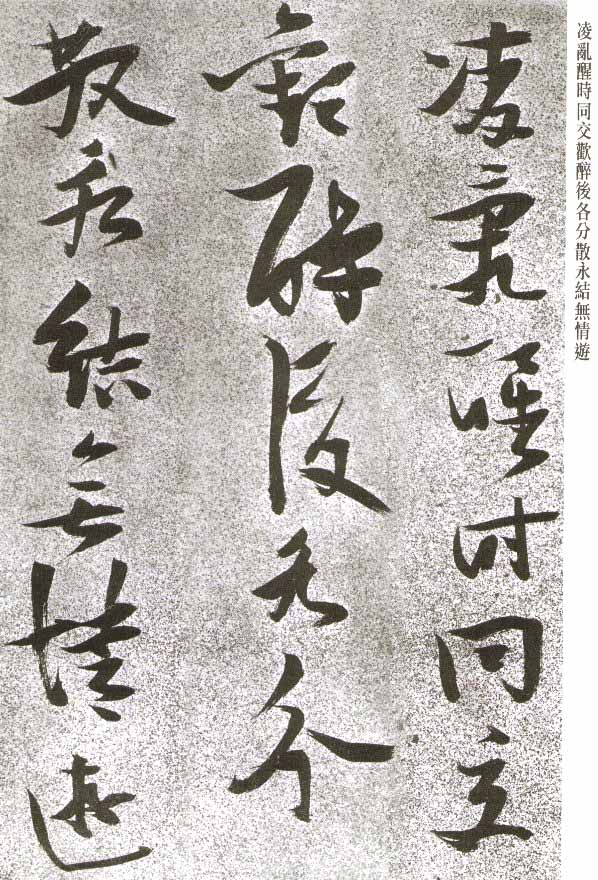 凌亂醒時同交歡醉後各分散永結無情遊
凌亂醒時同交
歡醉後各分
散永結無情遊